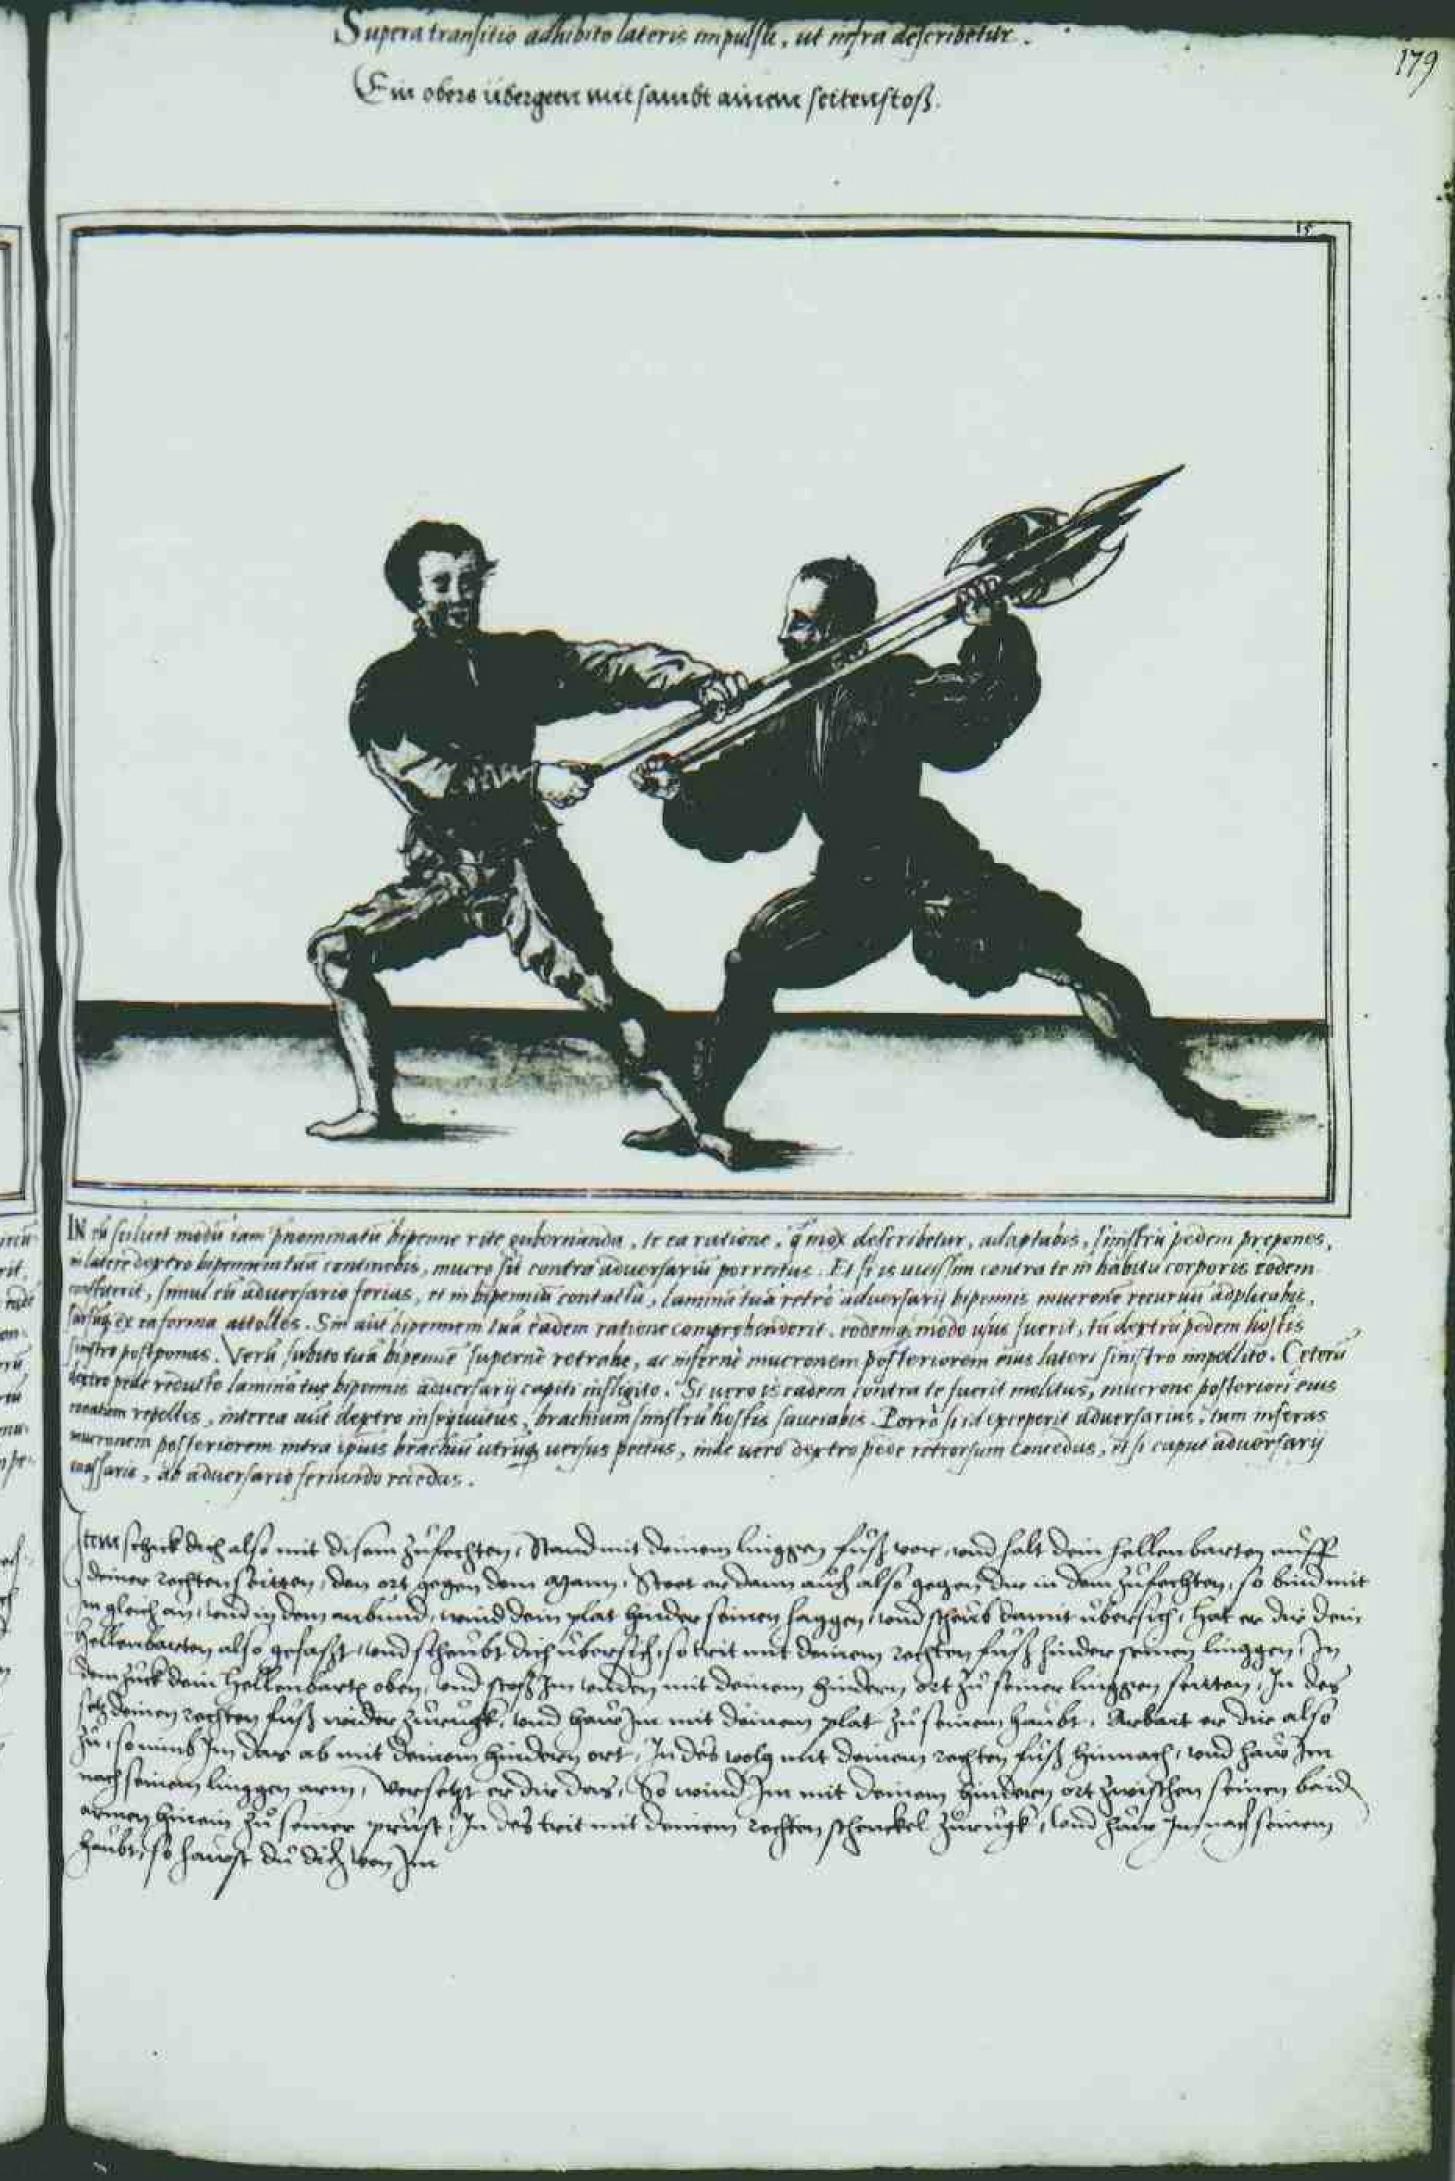 Supera transitio adhibito lateris impulsu, ut infra describetur.
179
Ein obers übergeen mit sambt ainem seitenstoß.
15
IN eũ scilicet modũ iam p̃nominatũ bipenne rite gubernanda, te ea ratione, q̃ mox describetur, adaptabis, sinistrũ pedem prepones,
in latere dextro bipennem tuã continebis, mucro sit contra adversariũ porrectus. Et si is vicissim contra te in habitu corporis eodem
constiterit, simul cũ adversario ferias, et in bipenniũ contactu, lamina tuã retro adversarij bipennis mucronẽ recurvũ adplicabis,
ex ea forma attolles. Sin aũt bipennem tuã eadem ratione comprehenderit, eodemq; modo usus fuerit, tu dextrũ pedem hostis
sinistro postponas. Verũ subito tuã bipennẽ supernè retrahe, ac infernè mucronem posteriorem eius lateri sinistro impellito. Ceterũ
dextro pede reducto lamina tuę bipennis adversarij capiti infligito. Si vero is eadem contra te fuerit molitus, mucrone posteriori eius
conatum repelles, interea aũt dextro insequutus, brachium sinistrũ hostis sauciabis. Porrò si id exceperit adversarius, tum inseras
mucronem posteriorem intra ipsius brachiũ utrũq; versus pectus, inde vero dextro pede retrorsum concedas, et si caput adversarij
ab adversario feriundo recedas.
Item schick dich also mit disem zufechten, Stand mit deinem linggen fuß vor, und halt dein hellenbarten auff
deiner rechten seitten, den ort gegen dem Mann, Steet er dann auch also gegen dir in dem zufechten, so bind mit
im gleich an, und in dem anbund, wind dein plat hinder seinen haggen, und scheub damit übersich, hat er dir dein
Hellenbarten also gefasßt, und scheubt dich übersich, so trit mit deinem rechten fuß hinder seinen linggen, In
dem zuck dein Hellenbartẽ oben, und stoß Im unden mit deinem hindern ort zu seiner linggen seitten, In des
setz deinen rechten fuß wider zurugk, und haw Im mit deinem plat zu seinem haubt, Arbait er dir also
zu, so nimb Im das ab mit deinem hindern ort, In des volg mit deinem rechten fuß hinnach, und haw Im
nach seinem linggen arm, Versetzt er dir das, So wind Im mit deinem hindern ort zwischen seinen baid
armen hinein zu seiner prust, In des trit mit deinem rechten schenckel zurugk, und haw Im nach seinem
haubt, so hawst du dich von Im